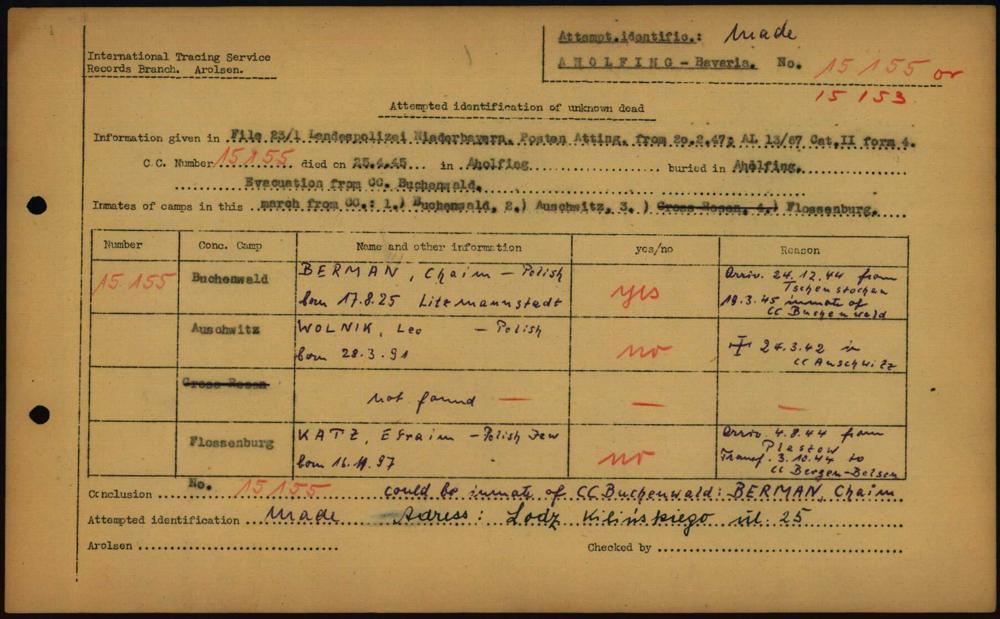 Attempt.identific.: Made
International Tracing Service
Records Branch. Arolsen.
AHOLFING - Bavaria. No. 15155 or
15153
Attempted identification of unknown dead
Information given in File 23/1 Landespolizei Niederbayern. Posten Atting. from 20.2.47; AL 13/67 Cat.II form 4.
C.C. Number 15155 died on 25.4.45 in Aholfing buried in Aholfing.
Evacuation from CC. Buchenwald.
Inmates of camps in this march from CC.: 1.) Buchenwald, 2.) Auschwitz, 3.) Gross Rosen, 4.) Flossenburg.
Number Conc. Camp Name and other information yes/no Reason
15.155 Buchenwald BERMAN, Chaim - Polish
born 17.8.25 Litzmannstadt yes Arriv. 24.12.44 from
Tschenstochau
19.3.45 inmate of
CC Buchenwald
Auschwitz WOLNIK, Leo - Polish
born 28.3.91 no + 24.3.42 in
CC Auschwitz
Gross Rosen not found — — —
Flossenburg KATZ, Efraim - Polish Jew
born 16.11.97 no Arriv. 4.8.44 from
Plaszow
Transf. 3.10.44 to
CC Bergen-Belsen
Conclusion No. 15155 could be inmate of CC Buchenwald: BERMAN, Chaim
Attempted identification Made Adress: Lodz Kilińskiego ul. 25
Arolsen Checked by